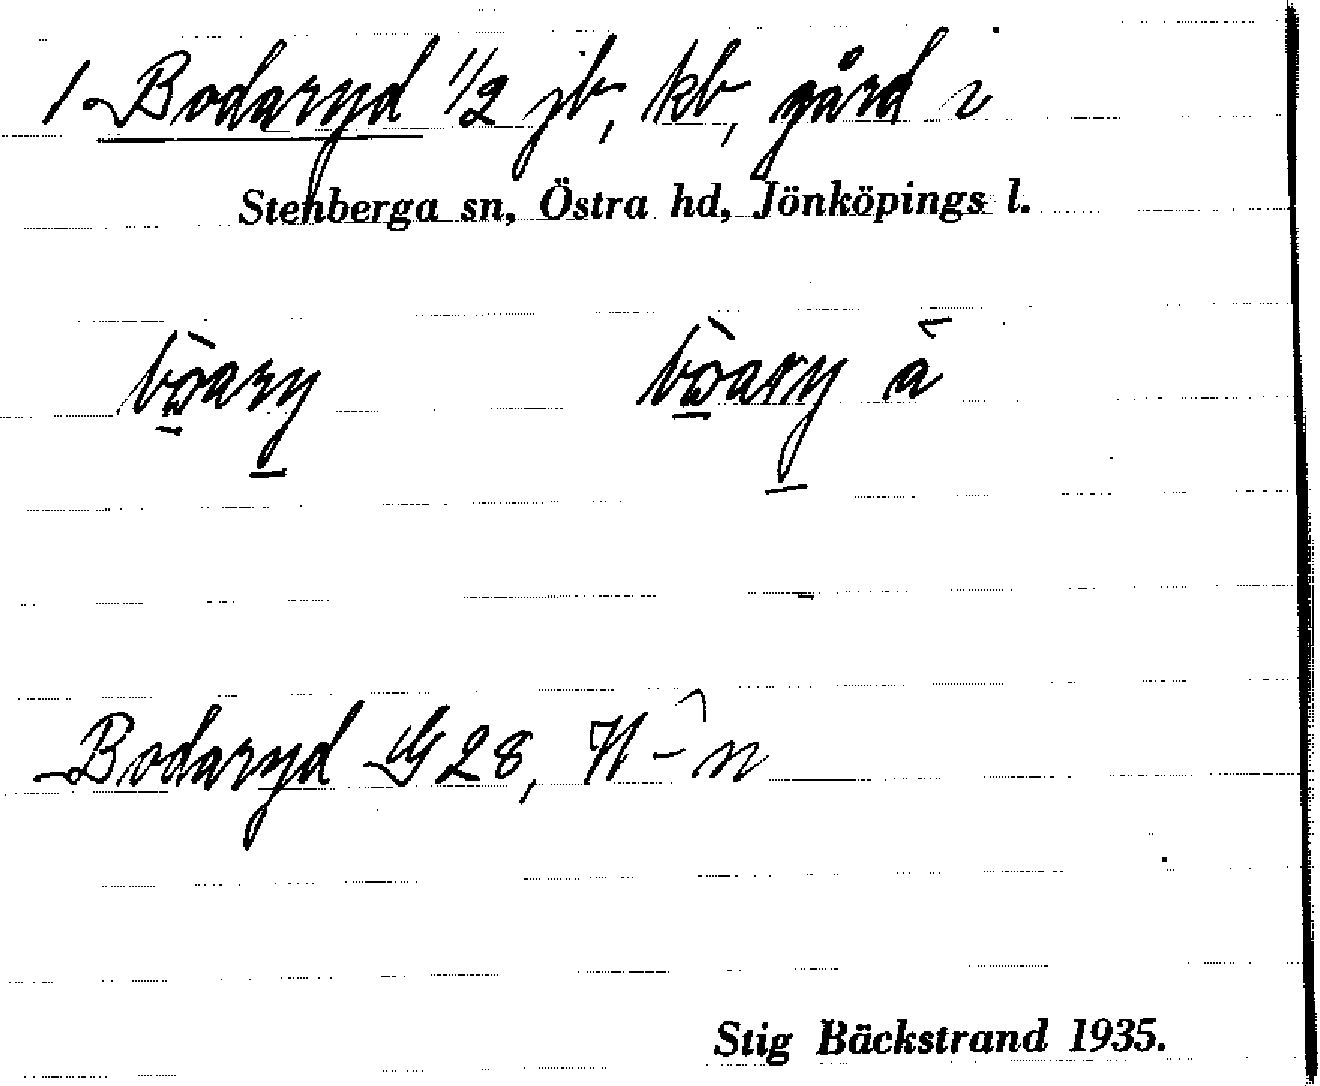 1. Bodaryd 1/2 jb, kb, gård i
Stenberga sn, Östra hd, Jönköpings l.
Bodaryd G 28, N-n
Stig Bäckstrand 1935.